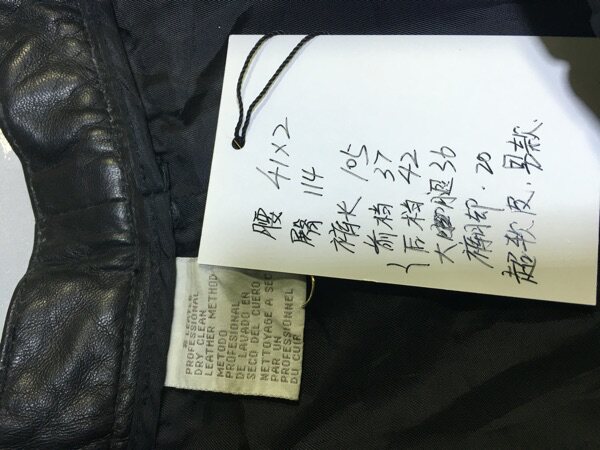 腰 41×2
臀 114
裤长 105
前裆 37
后裆 42
大腿 36
裤脚 · 20
超软皮, 男款.
PROFESSIONAL
DRY CLEAN
LEATHER METHOD
METODO
PROFESIONAL
DE LAVADO EN
SECO DEL CUERO
NETTOYAGE A SEC
PAR UN
PROFESSIONNEL
DU CUIR